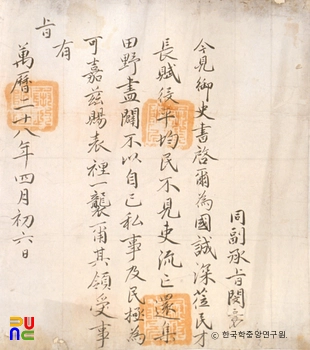 同副承旨閔
今見御史書啓爾為國誠深莅民才
長賦役平均民不見吏流亡還集
田野盡闢不以自己私事及民極為
可嘉茲賜表裡一襲爾其領受事
有
旨
萬曆二十八年四月初六日
© 한국학중앙연구원